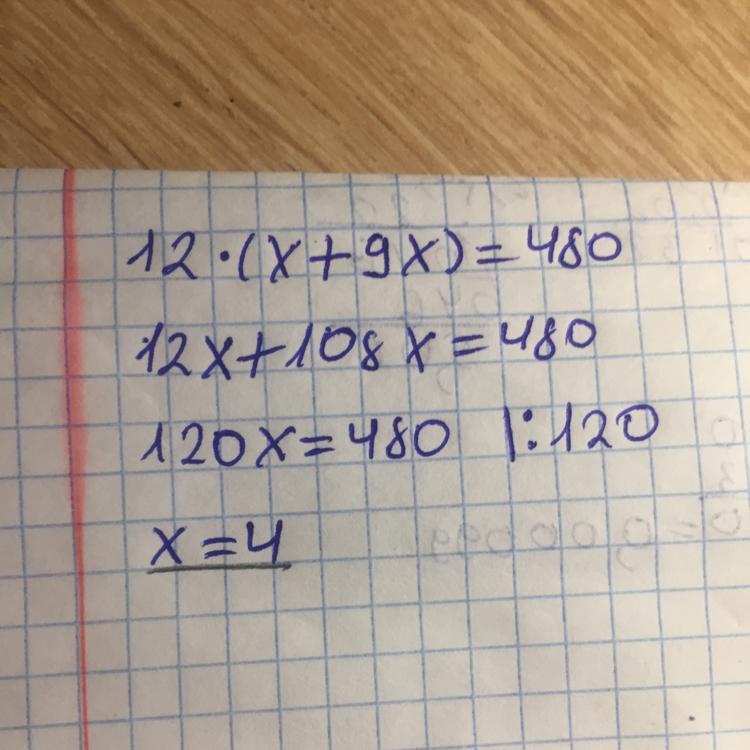 12·(x+9x)=480
12x+108x=480
120x=480 |:120
x=4